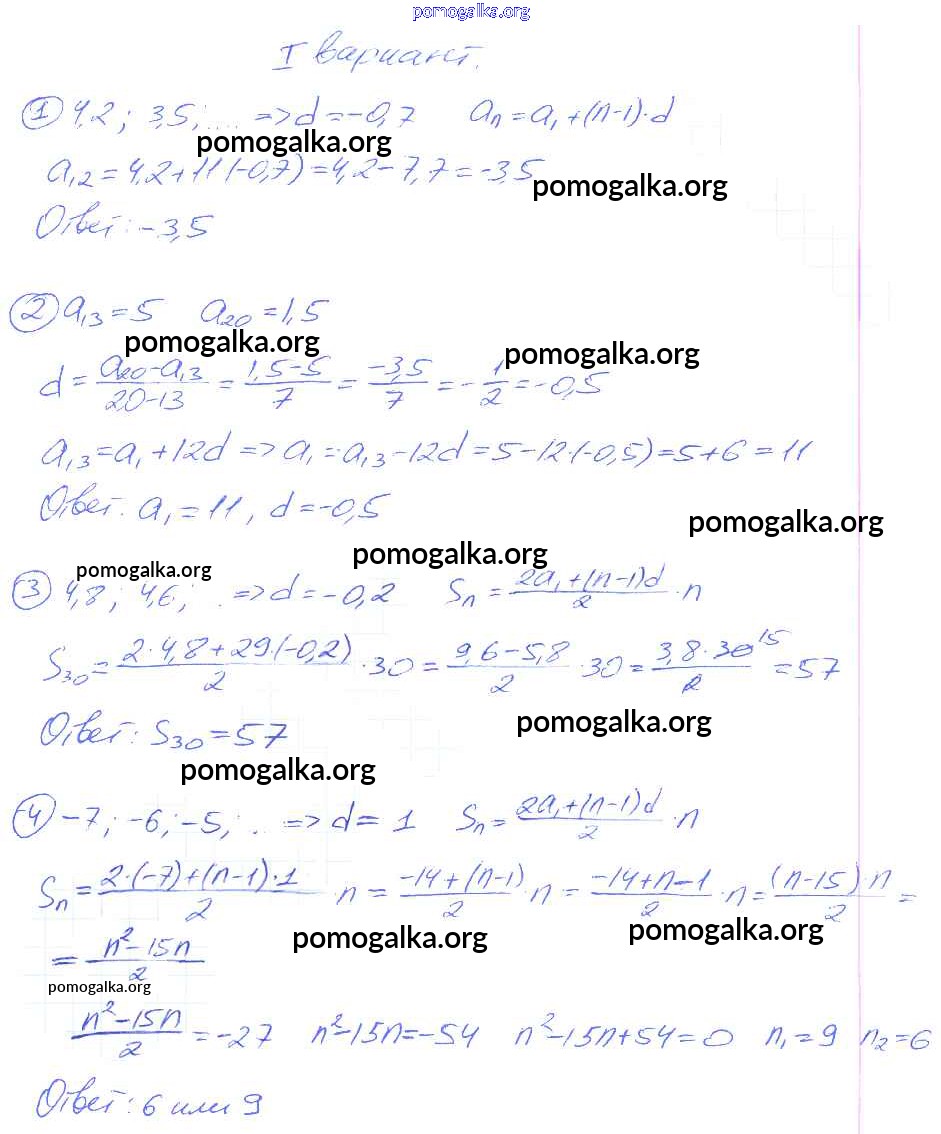 pomogalka.org
I вариант.
① 4,2; 3,5; ... => d = -0,7 aₙ = a₁ + (n-1)·d
pomogalka.org
a₁₂ = 4,2 + 11(-0,7) = 4,2 - 7,7 = -3,5
pomogalka.org
Ответ: -3,5
② a₁₃ = 5 a₂₀ = 1,5
pomogalka.org
pomogalka.org
d = (a₂₀ - a₁₃)/(20-13) = (1,5-5)/7 = (-3,5)/7 = -1/2 = -0,5
a₁₃ = a₁ + 12d => a₁ = a₁₃ - 12d = 5 - 12·(-0,5) = 5 + 6 = 11
Ответ: a₁ = 11, d = -0,5
pomogalka.org
pomogalka.org
pomogalka.org
③ 4,8; 4,6; . => d = -0,2 Sₙ = (2a₁ + (n-1)d)/2 · n
S₃₀ = (2·4,8 + 29·(-0,2))/2 · 30 = (9,6 - 5,8)/2 · 30 = (3,8·30)/2 15 = 57
pomogalka.org
Ответ: S₃₀ = 57
pomogalka.org
④ -7; -6; -5; .. => d = 1 Sₙ = (2a₁ + (n-1)d)/2 · n
Sₙ = (2·(-7) + (n-1)·1)/2 · n = (-14 + (n-1))/2 · n = (-14 + n - 1)/2 · n = ((n-15)·n)/2 =
pomogalka.org
pomogalka.org
= (n² - 15n)/2
pomogalka.org
(n² - 15n)/2 = -27 n² - 15n = -54 n² - 15n + 54 = 0 n₁ = 9 n₂ = 6
Ответ: 6 или 9